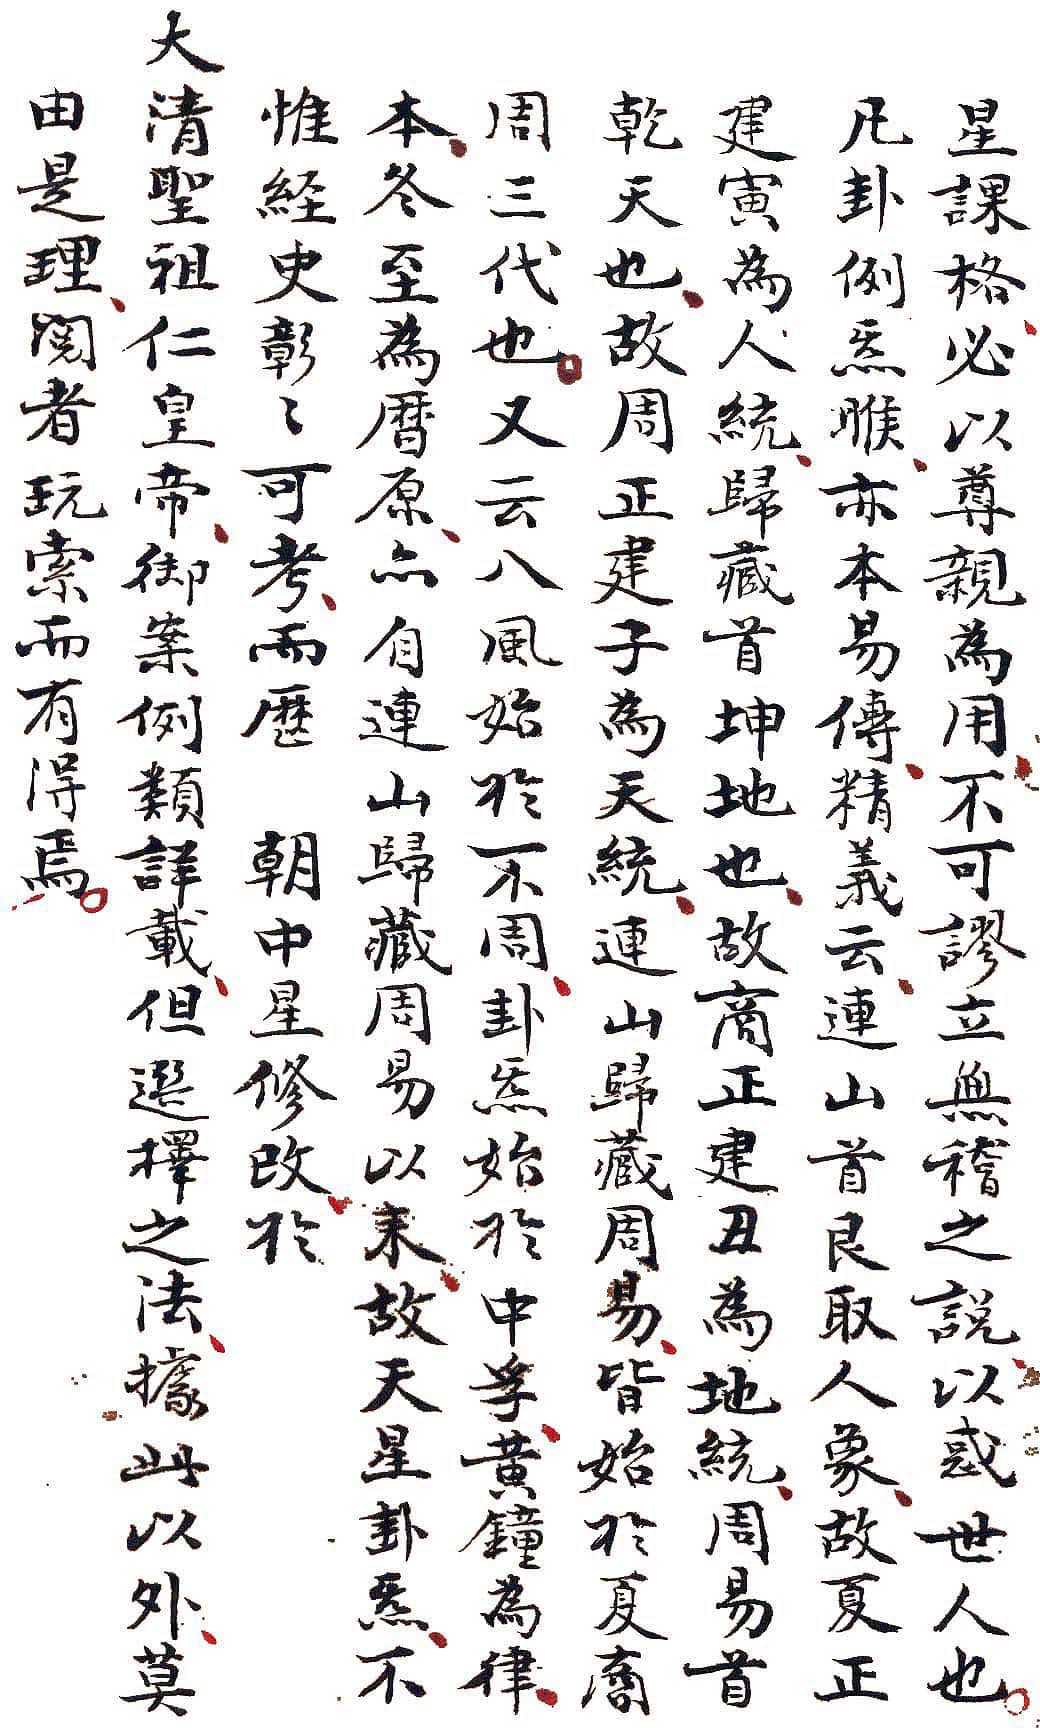 星課格必以尊親為用不可謬立無稽之說以惑世人也
凡卦例炁睺亦本易傳精義云連山首艮取人象故夏正
建寅為人統歸藏首坤地也故商正建丑為地統周易首
乾天也故周正建子為天統連山歸藏周易皆始於夏商
周三代也又云八風始於不周卦炁始於中孚黃鐘為律
本冬至為曆原亦自連山歸藏周易以來故天星卦炁不
惟経史彰〻可考而歷 朝中星修改於
大清聖祖仁皇帝御案例類詳載但選擇之法據此以外莫
由是理閱者玩索而有得焉